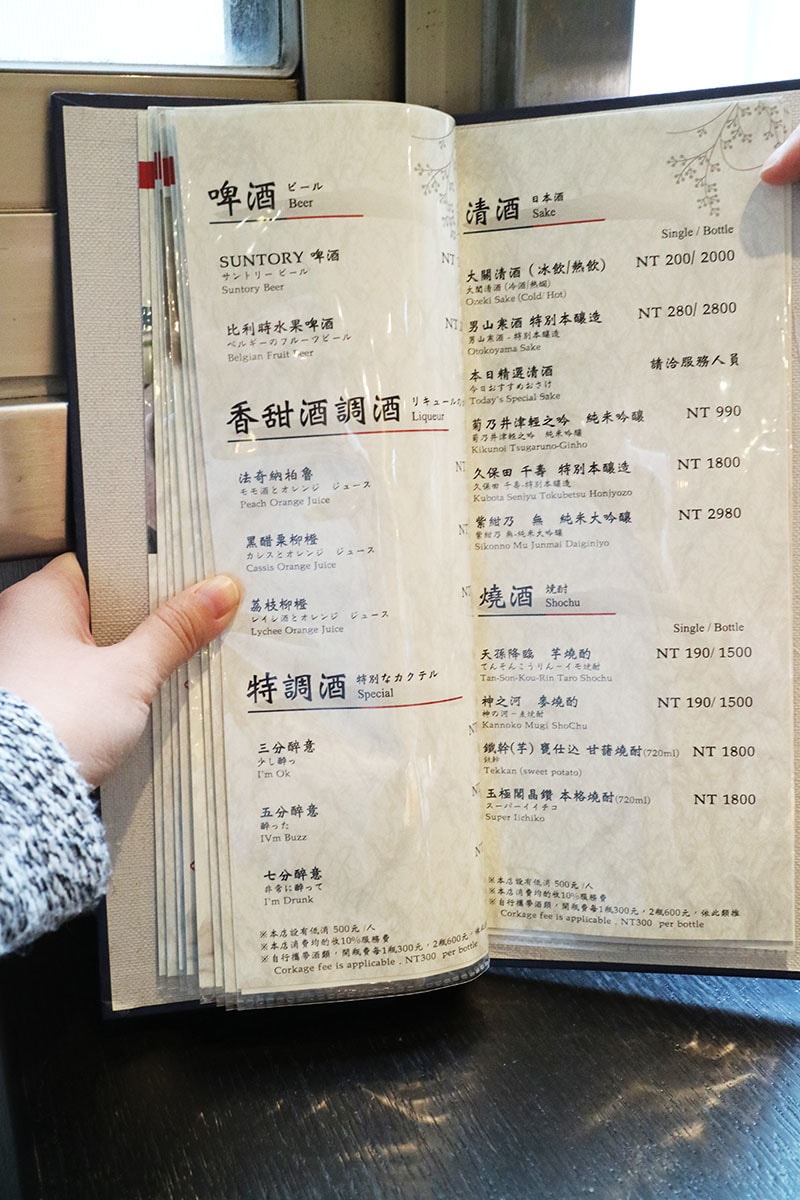 啤酒 ビール
Beer
SUNTORY 啤酒 NT
サントリー ビール
Suntory Beer
比利時水果啤酒 NT
ベルギーのフルーツビール
Belgian Fruit Beer
香甜酒調酒 リキュール
Liqueur
法奇納柏魯 NT
モモ酒とオレンジ ジュース
Peach Orange Juice
黑醋栗柳橙 NT
カシスとオレンジ ジュース
Cassis Orange Juice
荔枝柳橙 NT
レイシ酒とオレンジ ジュース
Lychee Orange Juice
特調酒 特別なカクテル
Special
三分醉意
少し醉っ
I'm Ok
五分醉意
醉った
I'm Buzz
七分醉意
非常に醉って
I'm Drunk
※本店設有低消 500元 /人
※本店消費均酌收10%服務費
※自行攜帶酒類，開瓶費每1瓶300元，2瓶600元，
Corkage fee is applicable . NT300 per bottle
清酒 日本酒
Sake
Single / Bottle
大關清酒 (冰飲/熱飲) NT 200/ 2000
大關清酒 (冷酒/熱燗)
Ozeki Sake (Cold/ Hot)
男山寒酒 特別本釀造 NT 280/ 2800
男山寒酒 - 特別本釀造
Otokoyama Sake
本日精選清酒 請洽服務人員
今日おすすめおさけ
Today's Special Sake
菊乃井津輕之吟 純米吟釀 NT 990
菊乃井津輕之吟 純米吟釀
Kikunoi Tsugaruno-Ginho
久保田 千壽 特別本釀造 NT 1800
久保田 千壽-特別本釀造
Kubota Senjyu Tokubetsu Honjyozo
紫紺乃 無 純米大吟釀 NT 2980
紫紺乃 無-純米大吟釀
Sikonno Mu Junmai Daiginjyo
燒酒 焼酎
Shochu
Single / Bottle
天孫降臨 芋燒酌 NT 190/ 1500
てんそんこうりん－イモ焼酎
Tan-Son-Kou-Rin Taro Shochu
神之河 麥燒酌 NT 190/ 1500
神の河－麦焼酎
Kannoko Mugi ShoChu
鐵幹(芋) 甕仕込 甘藷燒酎(720ml) NT 1800
鉄幹
Tekkan (sweet potato)
玉極閣晶鑽 本格燒酎(720ml) NT 1800
スーパーイイチコ
Super Iichiko
※本店設有低消 500元 /人
※本店消費均酌收10%服務費
※自行攜帶酒類，開瓶費每1瓶300元，2瓶600元，依此類推
Corkage fee is applicable . NT300 per bottle